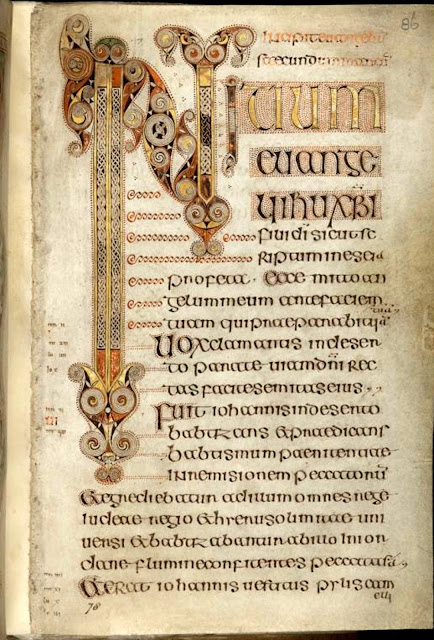 86
Incipit evangelii
secundum marcū
INITIUM
EVANGE
LII IHU XPI
filii di sicut sc
riptum in eseia
profeta · ecce mitto an
gelum meum ante faciem
tuam qui praeparabit uiā
tuā
Uox clamantis in deser
to parate uiam dni rec
tas facite semitas eius
Fuit iohannis in deserto
babtizans & praedicans
babtismum paenitentiae
in remisionem peccatorū
& egrediebatur ad illum omnes rege
iudeae regio & hierusolimitae uni
uersi & babtizabantur ab illo in ior
dane flumine confitentes peccata sua
& erat iohannis uestitus pylis cam
elli
78